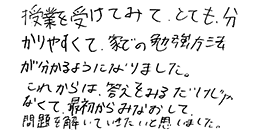 授業を受けてみて、とても、分
かりやすくて、家での勉強方法
が分かるようになりました。
これからは、答えをみるだけじゃ
なくて、最初からみなおして、
問題を解いていきたいと思いました。